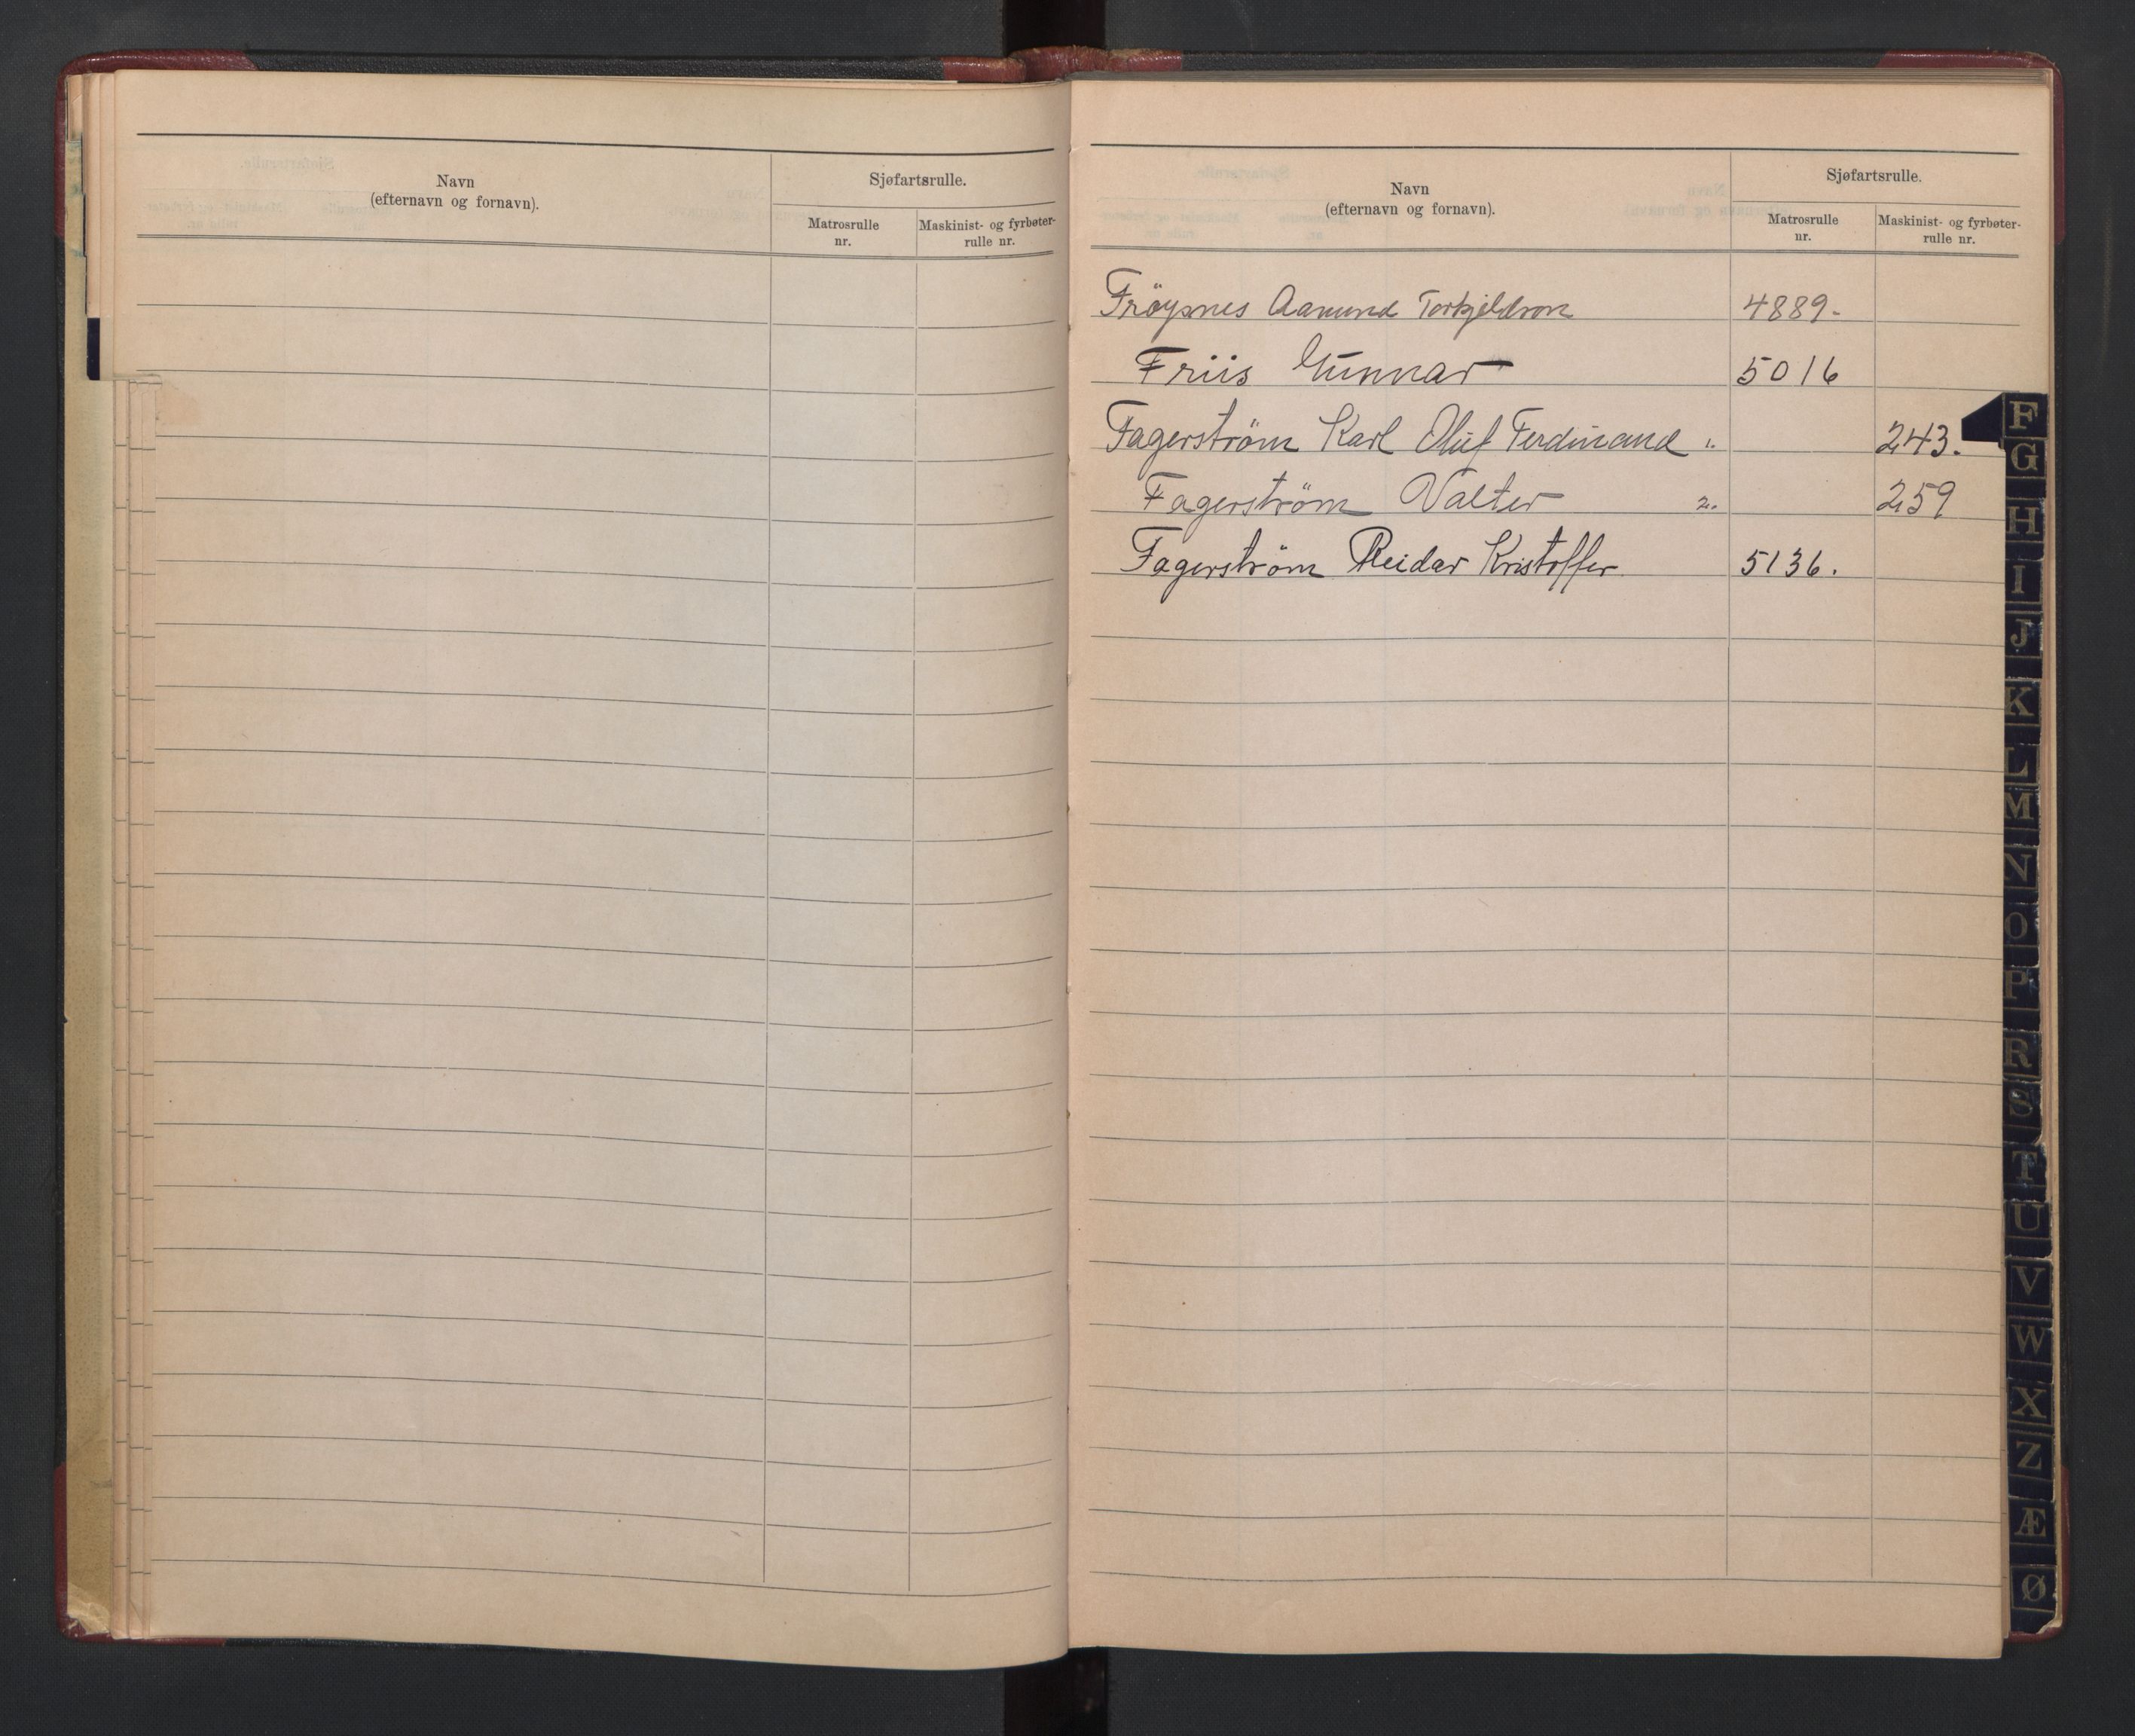 Navn
(efternavn og fornavn).
Sjøfartsrulle.
Matrosrulle
nr.
Maskinist- og fyrbøter-
rulle nr.
Navn
(efternavn og fornavn).
Sjøfartsrulle.
Matrosrulle
nr.
Maskinist- og fyrbøter-
rulle nr.
Fröysnes Aamund Torkjeldson 4889.
Friis Gunnar 5016
Fagerström Karl Oluf Ferdinand 1. 243.
Fagerström Valter 2. 259
Fagerström Reidar Kristoffer 5136.
F
G
H
I
J
K
L
M
N
O
P
R
S
T
U
V
W
X
Z
Æ
Ø